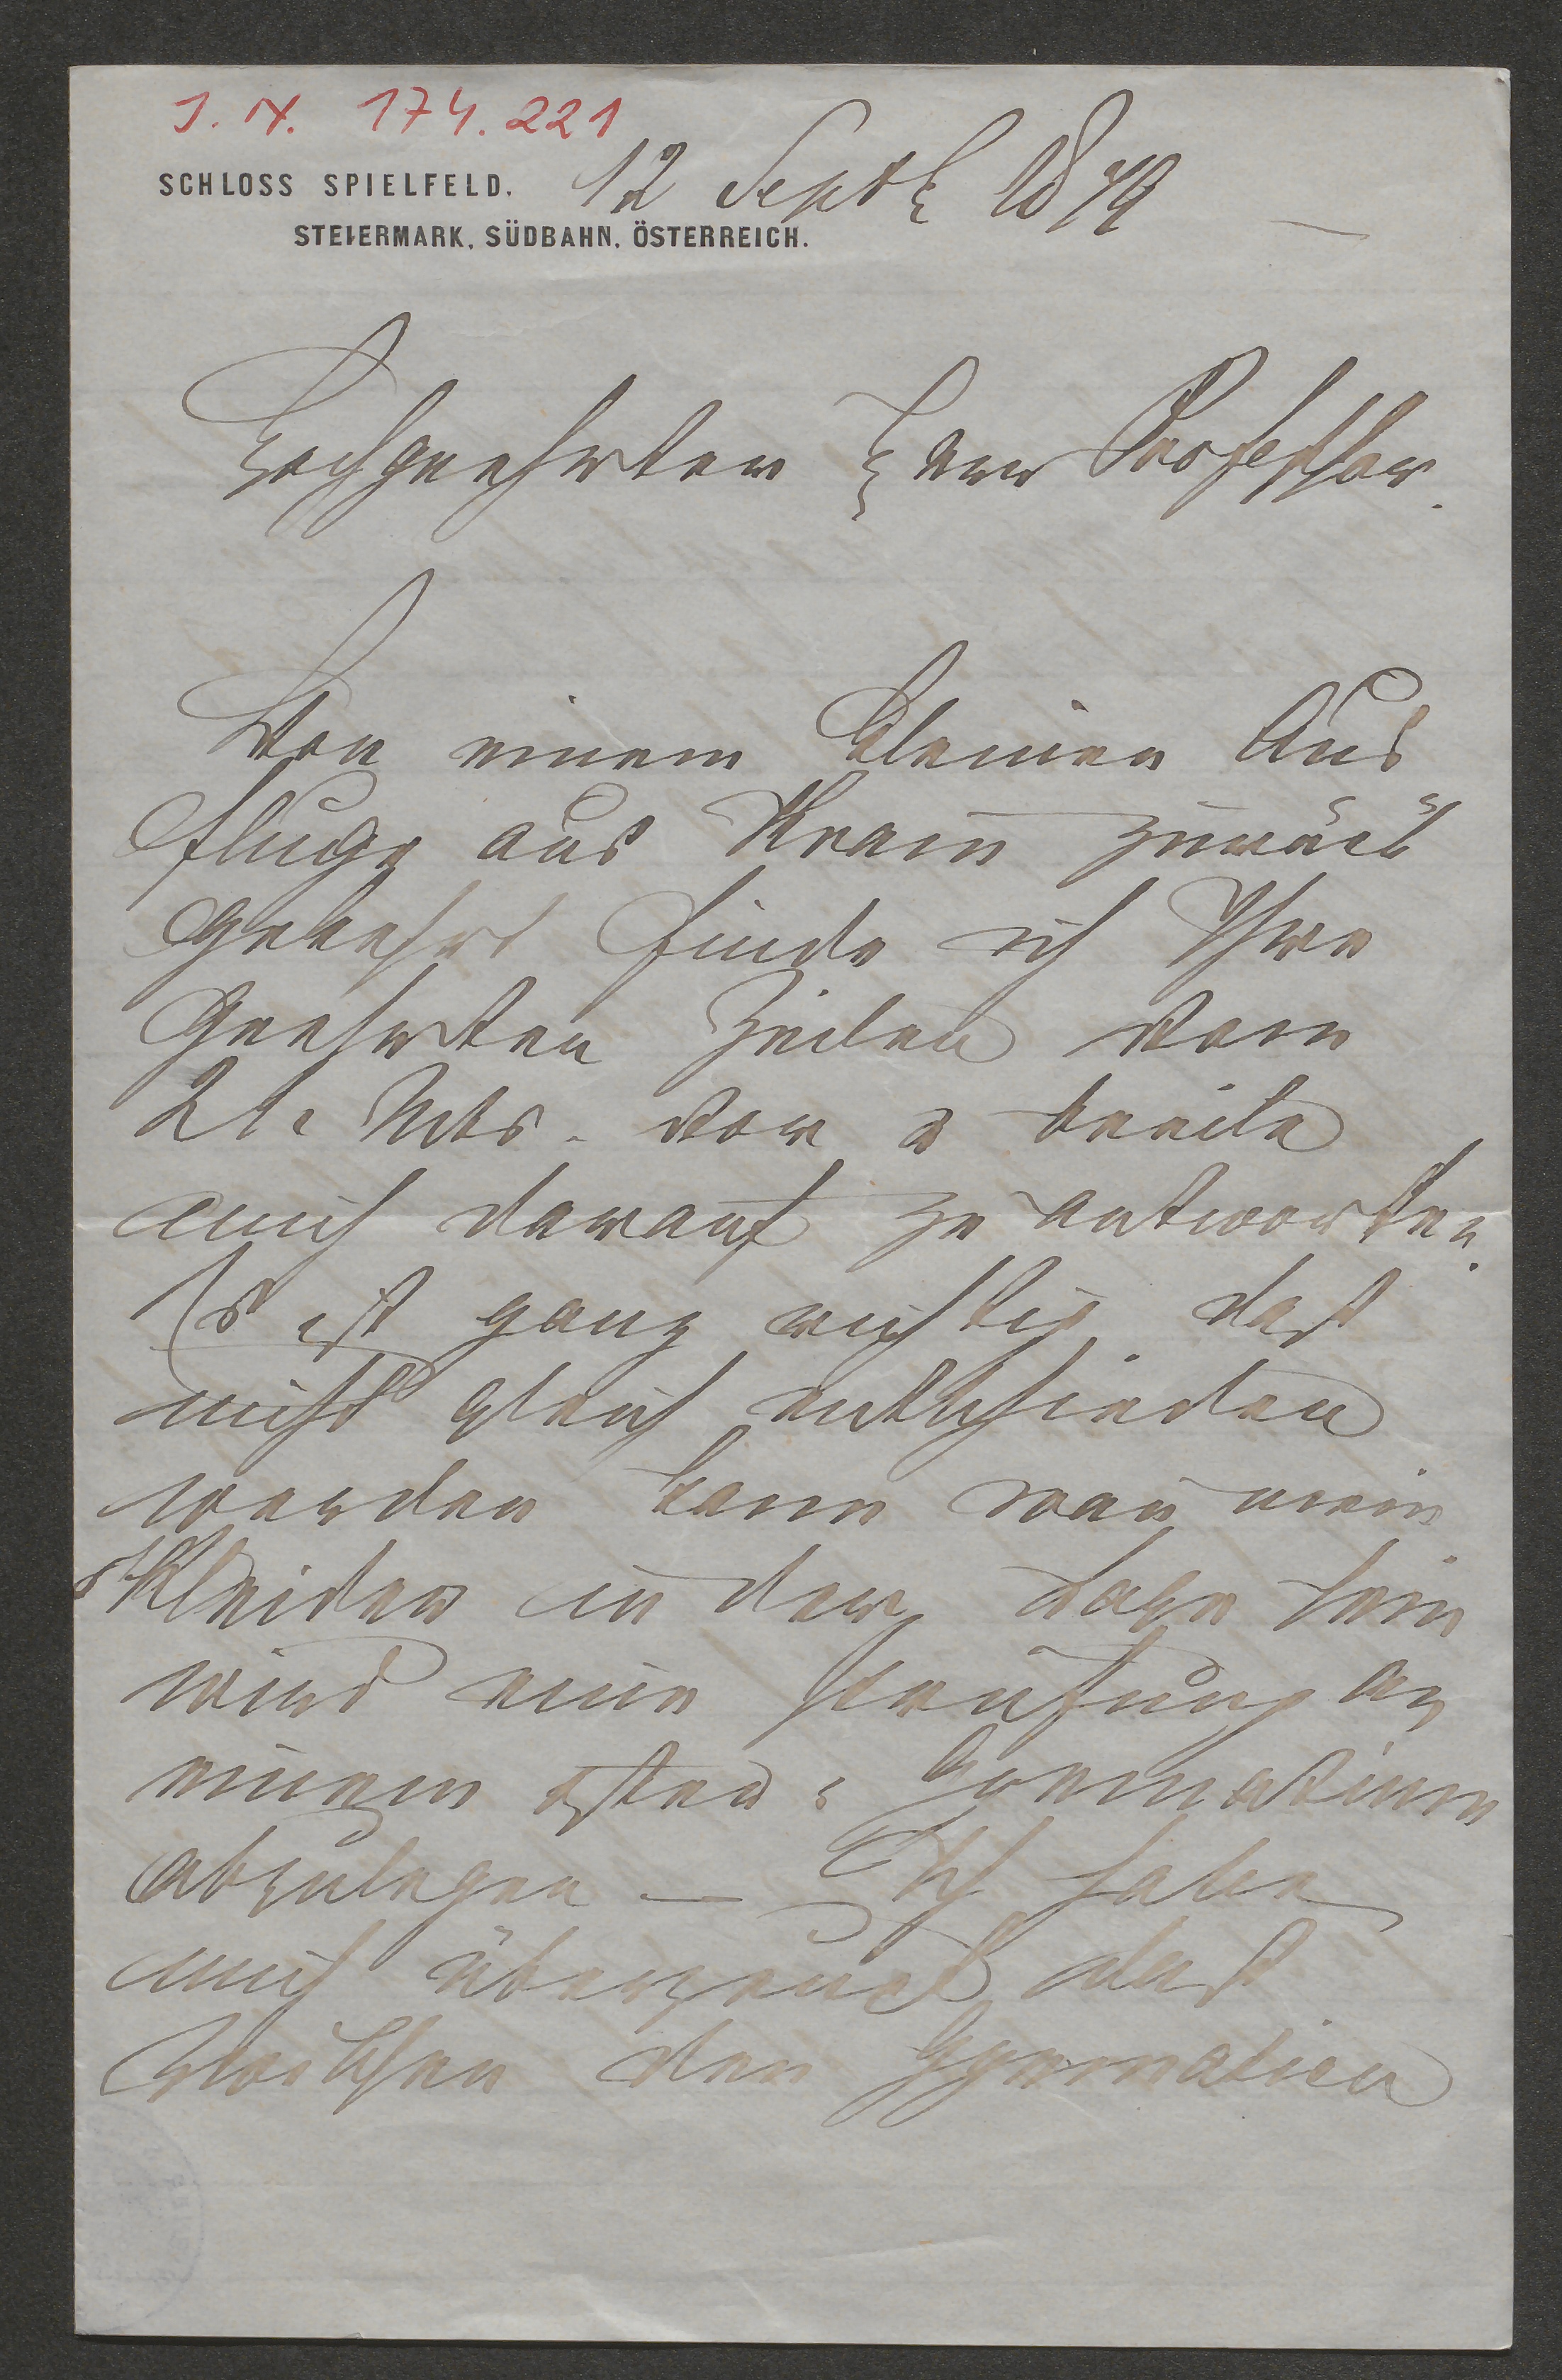 J. N. 174.221
SCHLOSS SPIELFELD. 12 Septb 1879
STEIERMARK, SÜDBAHN, ÖSTERREICH.
Hochgeehrter Herr Professor.
Von einem kleinen Aus
fluge aus Krain zurück
gekehrt finde ich Ihre
Geehrten Zeilen vom
Mts. vor & beeile
mich darauf zu antworten.
Es ist ganz richtig daß
nicht gleich entschieden
werden kann wan mein
Kleider in der Lage sein
wird eine Prüfung an
einem österr: Gymnasium
abzulegen — Ich habe
mich überzeugt daß
zwischen den Gymnasien